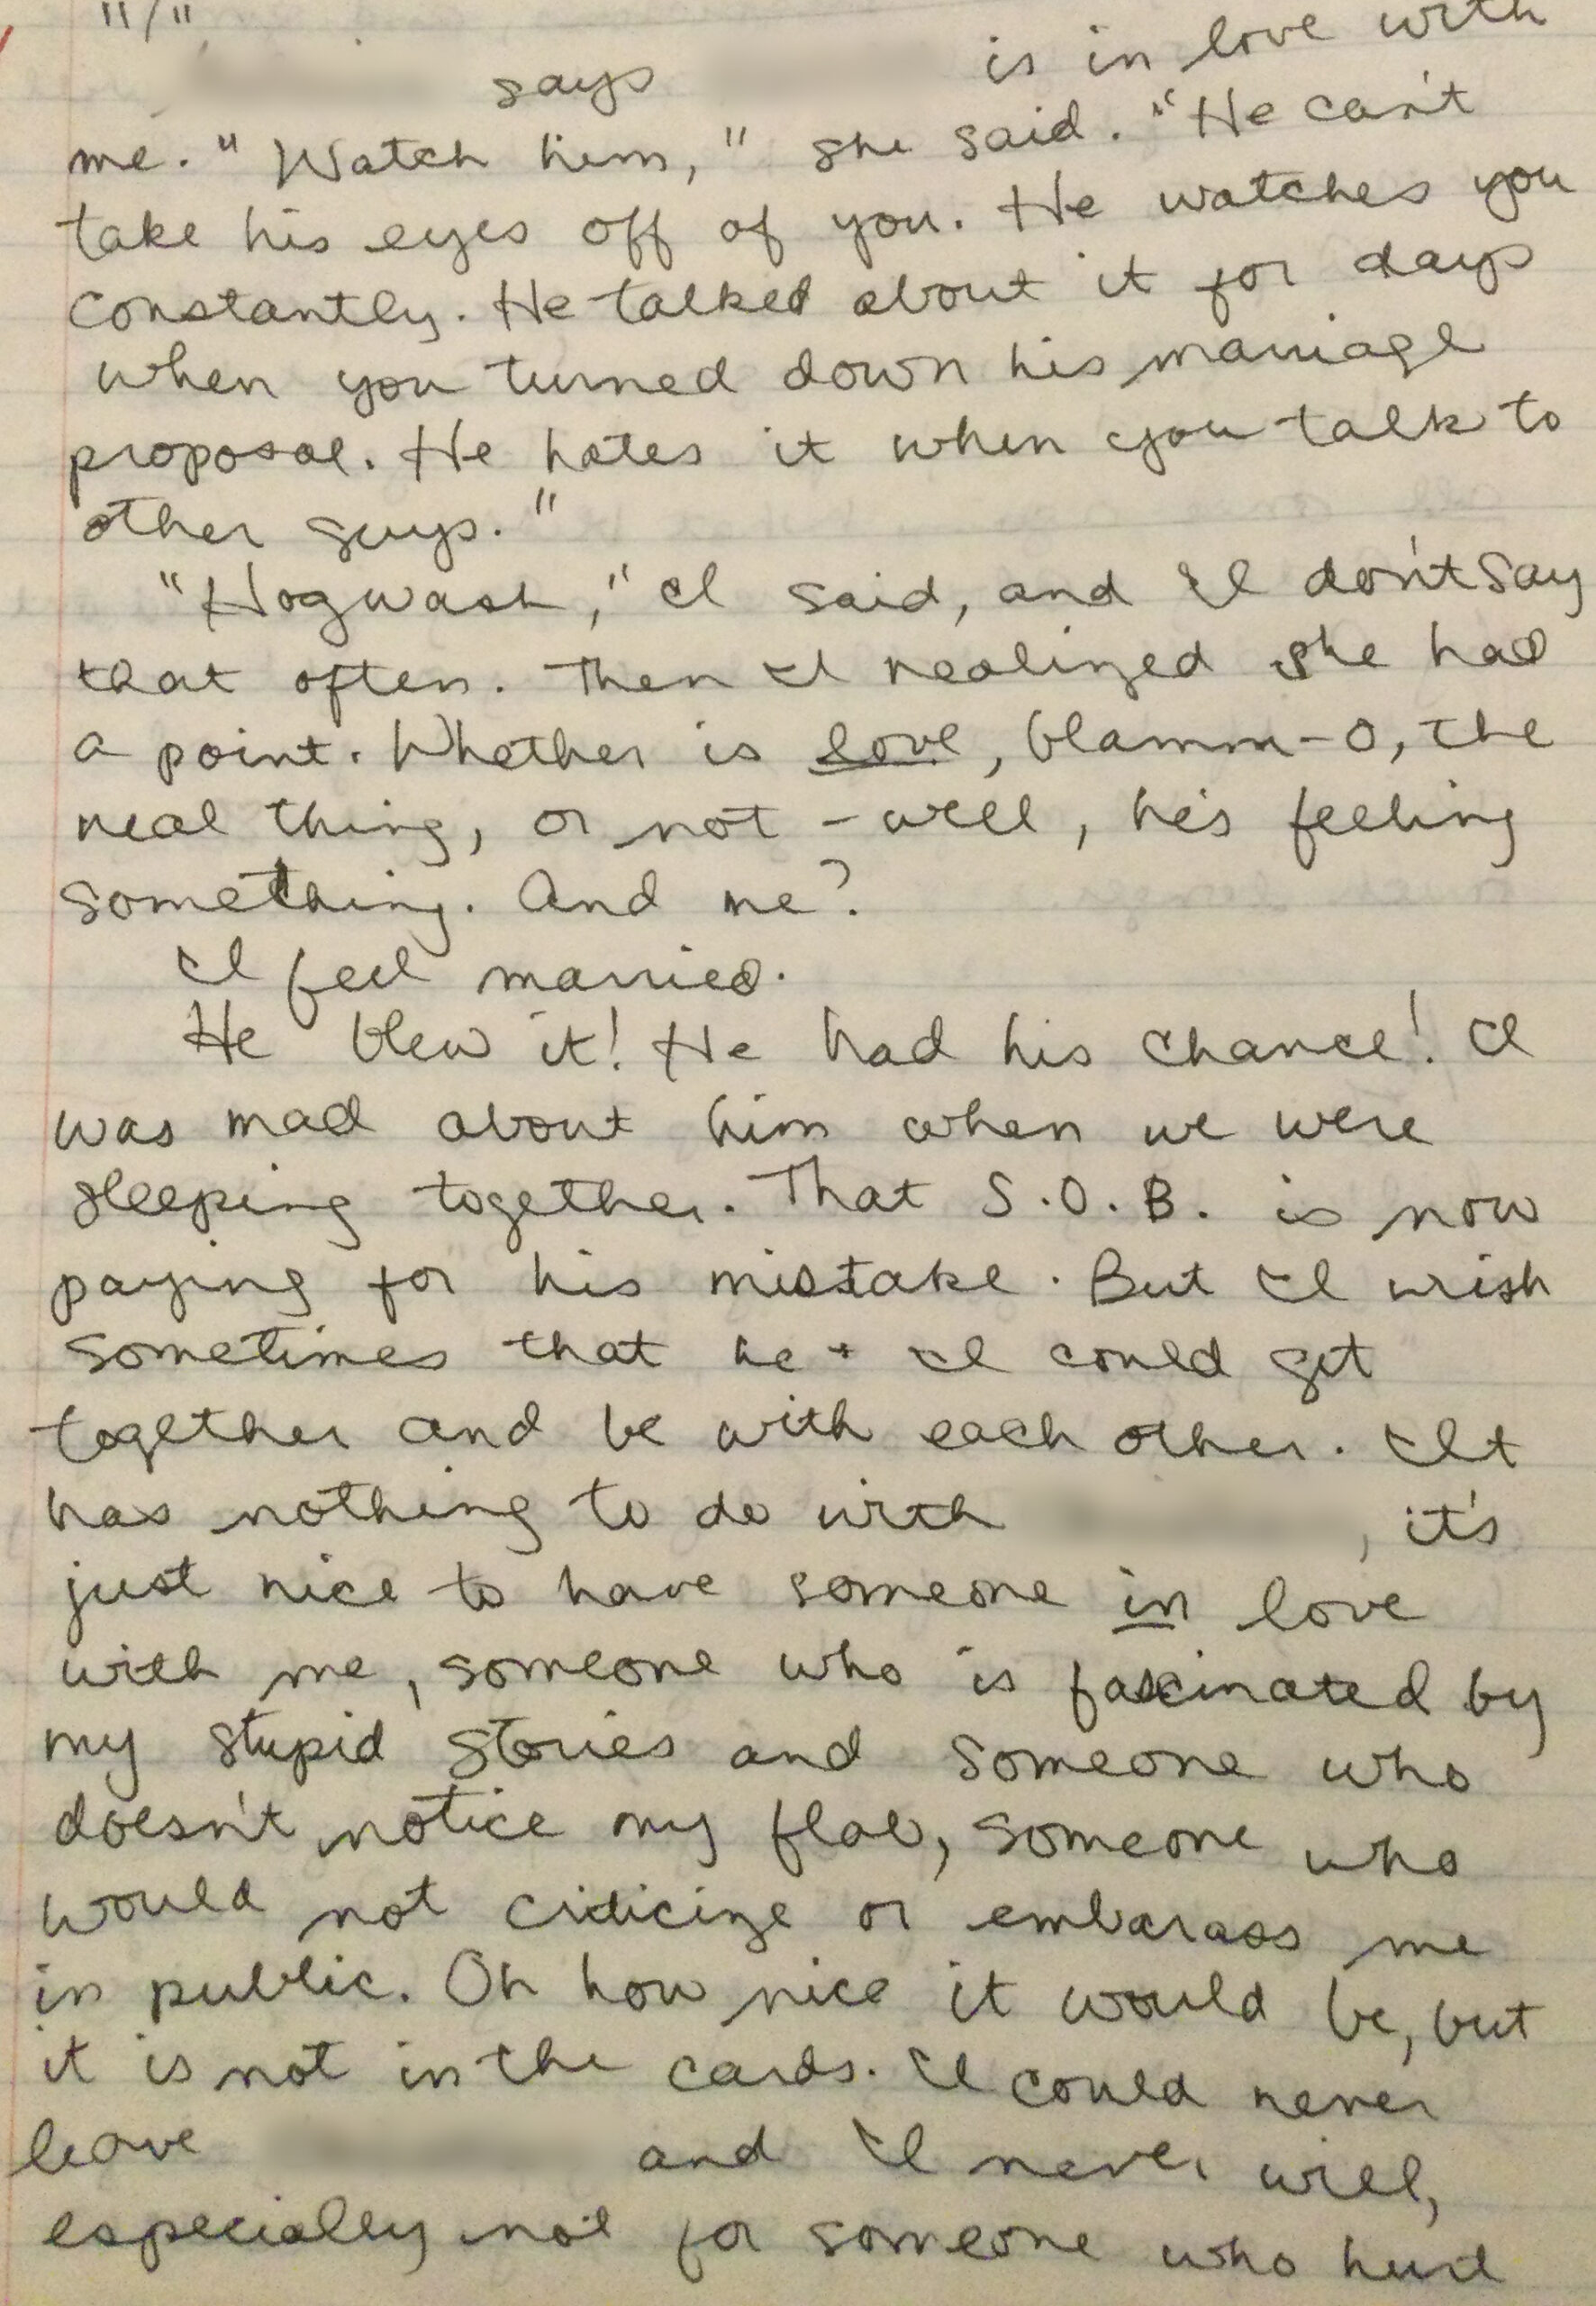 11/11
says is in love with
me. "Watch him," she said. "He can't
take his eyes off of you. He watches you
constantly. He talked about it for days
when you turned down his marriage
proposal. He hates it when you talk to
other guys."
"Hogwash," I said, and I don't say
that often. Then I realized she had
a point. Whether is love, blamm-o, the
real thing, or not - well, he's feeling
something. And me?
I feel married.
He blew it! He had his chance! I
was mad about him when we were
sleeping together. That S.O.B. is now
paying for his mistake. But I wish
sometimes that he + I could get
together and be with each other. It
has nothing to do with , it's
just nice to have someone in love
with me, someone who is fascinated by
my stupid stories and someone who
doesn't notice my flab, someone who
would not criticize or embarass me
in public. Oh how nice it would be, but
it is not in the cards. I could never
leave and I never will,
especially not for someone who hurt